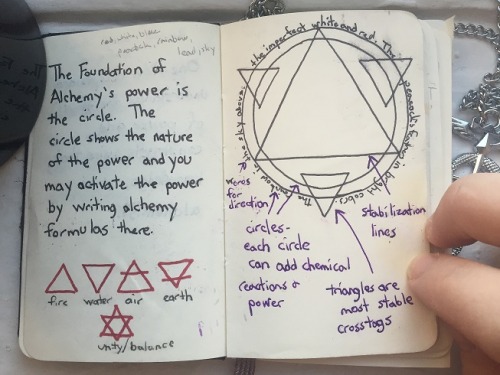 red, white, blue
peacock, rainbow,
lead, sky
The Foundation of
Alchemy's power is
the circle. The
circle shows the nature
of the power and you
may activate the power
by writing alchemy
formulas there.
fire water air earth
unity/balance
the imperfect white and red. The
peacock's
bright colors. The
rainbow in the sky above.
words
for
direction
circles-
each circle
can add chemical
reactions &
power
stabilization
lines
triangles are
most stable
cross tags